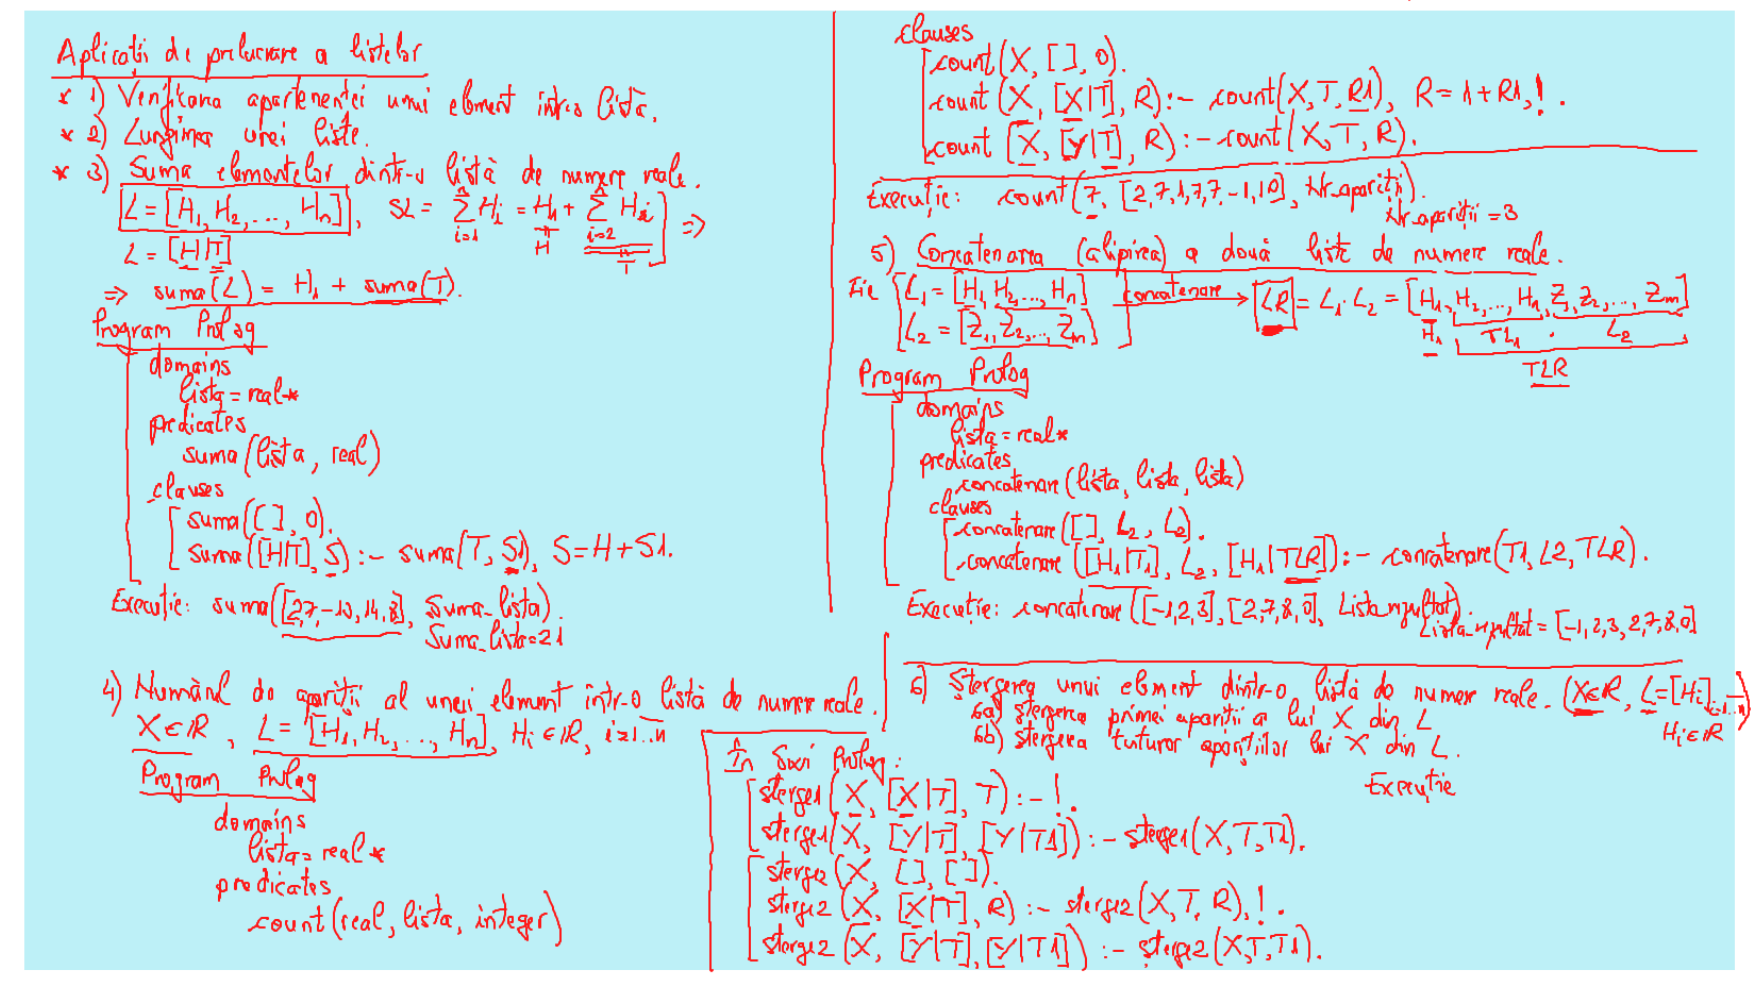 Aplicații de prelucrare a listelor
* 1) Verificarea apartenenței unui element într-o listă.
* 2) Lungimea unei liste.
* 3) Suma elementelor dintr-o listă de numere reale.
L = [H1, H2, ..., Hn], SL = ∑_{i=1}^{n} Hi = H1 + ∑_{i=2}^{n} Hi ⇒
H T
L = [H|T]
⇒ suma(L) = H1 + suma(T).
Program Prolog
domains
lista = real*
predicates
suma(lista, real)
clauses
suma([], 0).
suma([H|T], S) :- suma(T, S1), S = H + S1.
Execuție: suma([2,7,-10,14,8], Suma_lista).
Suma_lista=21
4) Numărul de apariții al unui element într-o listă de numere reale.
X ∈ ℝ, L = [H1, H2, ..., Hn], Hi ∈ ℝ, i=1..n
Program Prolog
domains
lista = real*
predicates
count(real, lista, integer)
clauses
count(X, [], 0).
count(X, [X|T], R) :- count(X, T, R1), R = 1 + R1, !.
count(X, [Y|T], R) :- count(X, T, R).
Execuție: count(7, [2,7,1,7,7,-1,10], Nr_apariții).
Nr_apariții = 3
5) Concatenarea (alipirea) a două liste de numere reale.
Fie L1 = [H1, H2, ..., Hn]
L2 = [Z1, Z2, ..., Zm]
concatenare → LR = L1·L2 = [H1, H2, ..., Hn, Z1, Z2, ..., Zm]
H1 TL1 · L2
TLR
Program Prolog
domains
lista = real*
predicates
concatenare(lista, lista, lista)
clauses
concatenare([], L2, L2).
concatenare([H1|T1], L2, [H1|TLR]) :- concatenare(T1, L2, TLR).
Execuție: concatenare([-1,2,3], [2,7,8,0], Lista_rezultat).
Lista_rezultat = [-1,2,3,2,7,8,0]
6) Ștergerea unui element dintr-o listă de numere reale. (X∈ℝ, L=[Hi] i=1..n)
Hi ∈ ℝ
6a) ștergerea primei apariții a lui X din L
6b) ștergerea tuturor aparițiilor lui X din L.
Execuție
În Swi Prolog:
sterge1(X, [X|T], T) :- !.
sterge1(X, [Y|T], [Y|T1]) :- sterge1(X, T, T1).
sterge2(X, [], []).
sterge2(X, [X|T], R) :- sterge2(X, T, R), !.
sterge2(X, [Y|T], [Y|T1]) :- sterge2(X, T, T1).